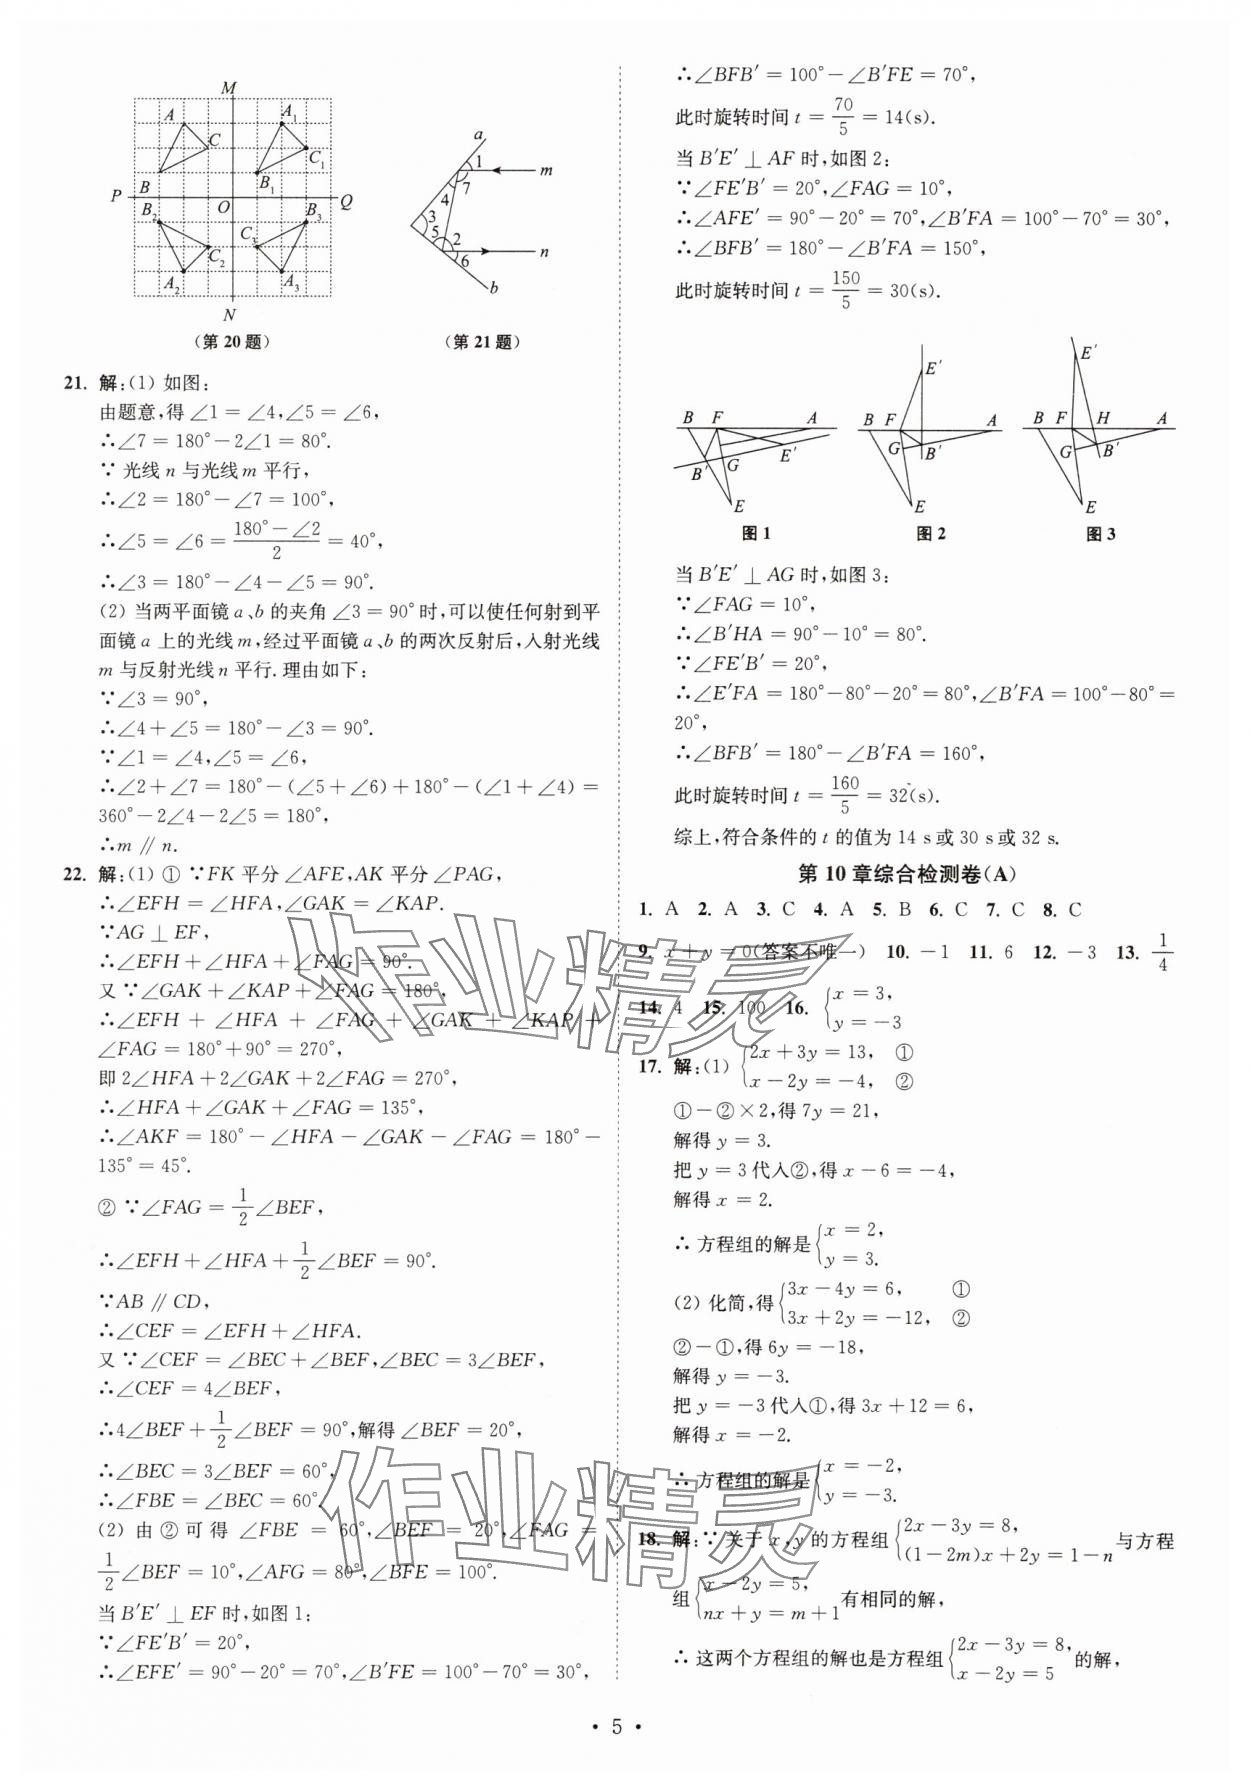 M
A
A₁
C
C₁
P
B
B₁
O
Q
B₂
B₃
C₃
C₂
A₂
A₃
N
(第20题)
a
1
m
7
4
3
5
2
n
6
b
(第21题)
21. 解:(1) 如图:
由题意,得∠1=∠4,∠5=∠6,
∴∠7=180°-2∠1=80°.
∵ 光线 n 与光线 m 平行,
∴∠2=180°-∠7=100°,
∴∠5=∠6=\frac{180°-∠2}{2}=40°,
∴∠3=180°-∠4-∠5=90°.
(2) 当两平面镜 a、b 的夹角∠3=90°时,可以使任何射到平
面镜 a 上的光线 m,经过平面镜 a、b 的两次反射后,入射光线
m 与反射光线 n 平行. 理由如下:
∵∠3=90°,
∴∠4+∠5=180°-∠3=90°.
∵∠1=∠4,∠5=∠6,
∴∠2+∠7=180°-(∠5+∠6)+180°-(∠1+∠4)=
360°-2∠4-2∠5=180°,
∴m∥n.
22. 解:(1) ① ∵FK 平分∠AFE,AK 平分∠PAG,
∴∠EFH=∠HFA,∠GAK=∠KAP.
∵AG⊥EF,
∴∠EFH+∠HFA+∠FAG=90°.
又∵∠GAK+∠KAP+∠FAG=180°,
∴∠EFH+∠HFA+∠FAG+∠GAK+∠KAP+
∠FAG=180°+90°=270°,
即 2∠HFA+2∠GAK+2∠FAG=270°,
∴∠HFA+∠GAK+∠FAG=135°,
∴∠AKF=180°-∠HFA-∠GAK-∠FAG=180°-
135°=45°.
② ∵∠FAG=\frac{1}{2}∠BEF,
∴∠EFH+∠HFA+\frac{1}{2}∠BEF=90°.
∵AB∥CD,
∴∠CEF=∠EFH+∠HFA.
又∵∠CEF=∠BEC+∠BEF,∠BEC=3∠BEF,
∴∠CEF=4∠BEF,
∴4∠BEF+\frac{1}{2}∠BEF=90°,解得∠BEF=20°,
∴∠BEC=3∠BEF=60°,
∴∠FBE=∠BEC=60°.
(2) 由②可得∠FBE=60°,∠BEF=20°,∠FAG=
\frac{1}{2}∠BEF=10°,∠AFG=80°,∠BFE=100°.
当 B′E′⊥EF 时,如图1:
∵∠FE′B′=20°,
∴∠EFE′=90°-20°=70°,∠B′FE=100°-70°=30°,
∴∠BFB′=100°-∠B′FE=70°,
此时旋转时间 t=\frac{70}{5}=14(s).
当 B′E′⊥AF 时,如图2:
∵∠FE′B′=20°,∠FAG=10°,
∴∠AFE′=90°-20°=70°,∠B′FA=100°-70°=30°,
∴∠BFB′=180°-∠B′FA=150°,
此时旋转时间 t=\frac{150}{5}=30(s).
B F A
B′ G E′
E
图1
E′
B F A
G B′
E
图2
E′
B F H A
G B′
E
图3
当 B′E′⊥AG 时,如图3:
∵∠FAG=10°,
∴∠B′HA=90°-10°=80°.
∵∠FE′B′=20°,
∴∠E′FA=180°-80°-20°=80°,∠B′FA=100°-80°=
20°,
∴∠BFB′=180°-∠B′FA=160°,
此时旋转时间 t=\frac{160}{5}=32(s).
综上,符合条件的 t 的值为 14 s 或 30 s 或 32 s.
第10章综合检测卷(A)
1. A 2. A 3. C 4. A 5. B 6. C 7. C 8. C
9. x+y=0(答案不唯一) 10. -1 11. 6 12. -3 13. \frac{1}{4}
14. 4 15. 100 16. {x=3, y=-3
17. 解:(1) {2x+3y=13, ① x-2y=-4, ②
①-②×2,得 7y=21,
解得 y=3.
把 y=3 代入②,得 x-6=-4,
解得 x=2.
∴ 方程组的解是{x=2, y=3.
(2) 化简,得{3x-4y=6, ① 3x+2y=-12, ②
②-①,得 6y=-18,
解得 y=-3.
把 y=-3 代入①,得 3x+12=6,
解得 x=-2.
∴ 方程组的解是{x=-2, y=-3.
18. 解:∵ 关于 x,y 的方程组{2x-3y=8, (1-2m)x+2y=1-n 与方程
组{x-2y=5, nx+y=m+1 有相同的解,
∴ 这两个方程组的解也是方程组{2x-3y=8, x-2y=5 的解,
• 5 •
作业精灵
作业精灵